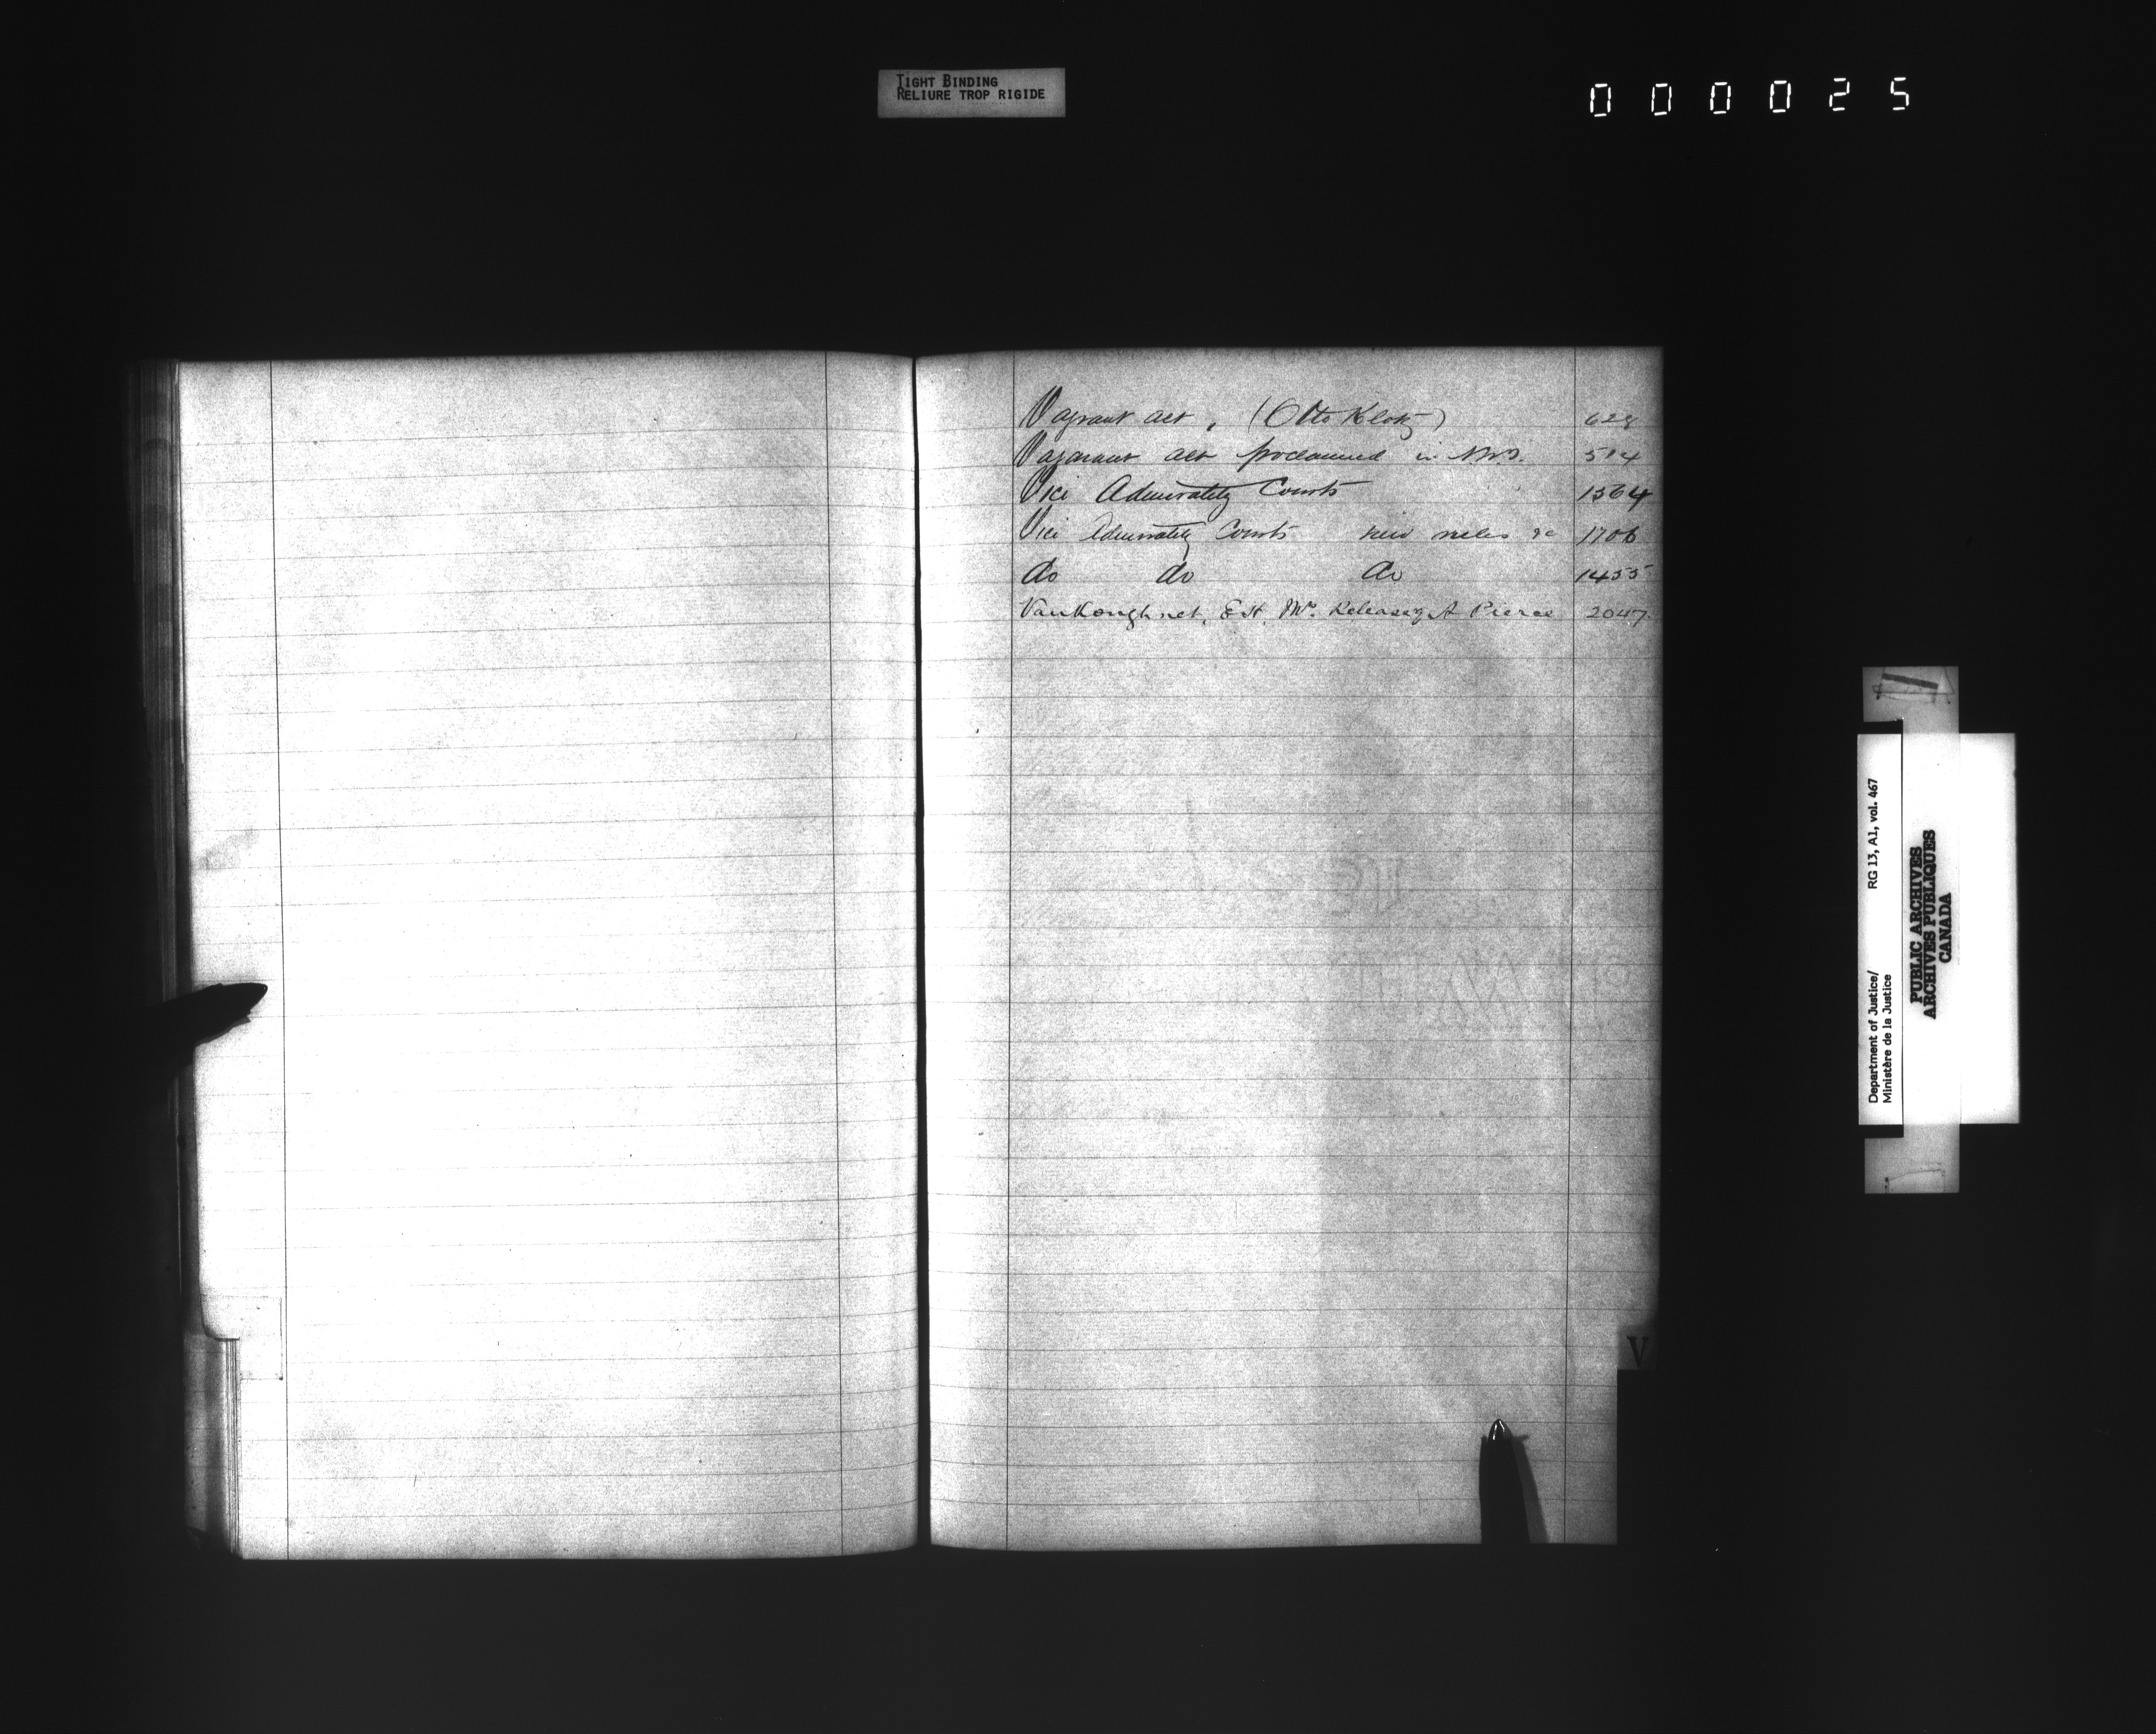 TIGHT BINDING
RELIURE TROP RIGIDE
000025
Vagrant act, (Otto Klotz) 628
Vagarant act proclaimed in 514
Vice Admiralty Courts 1564
Vice Admiralty Courts new rules &c 1706
do do do 1455
VanKoughnet, Est, Mr. Releasing A Pierce 2047
V
Department of Justice/ RG 13, A1, vol. 467
Ministère de la Justice
PUBLIC ARCHIVES
ARCHIVES PUBLIQUES
CANADA